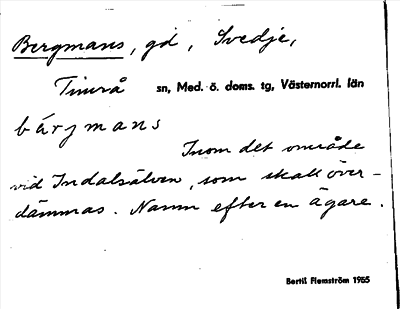 Bergmans, gd, Svedje,
Timrå sn, Med. ö. doms. tg, Västernorrl. län
bärjmans
Inom det område
vid Indalsälven, som skall över-
dämmas. Namn efter en ägare.
Bertil Flemström 1955